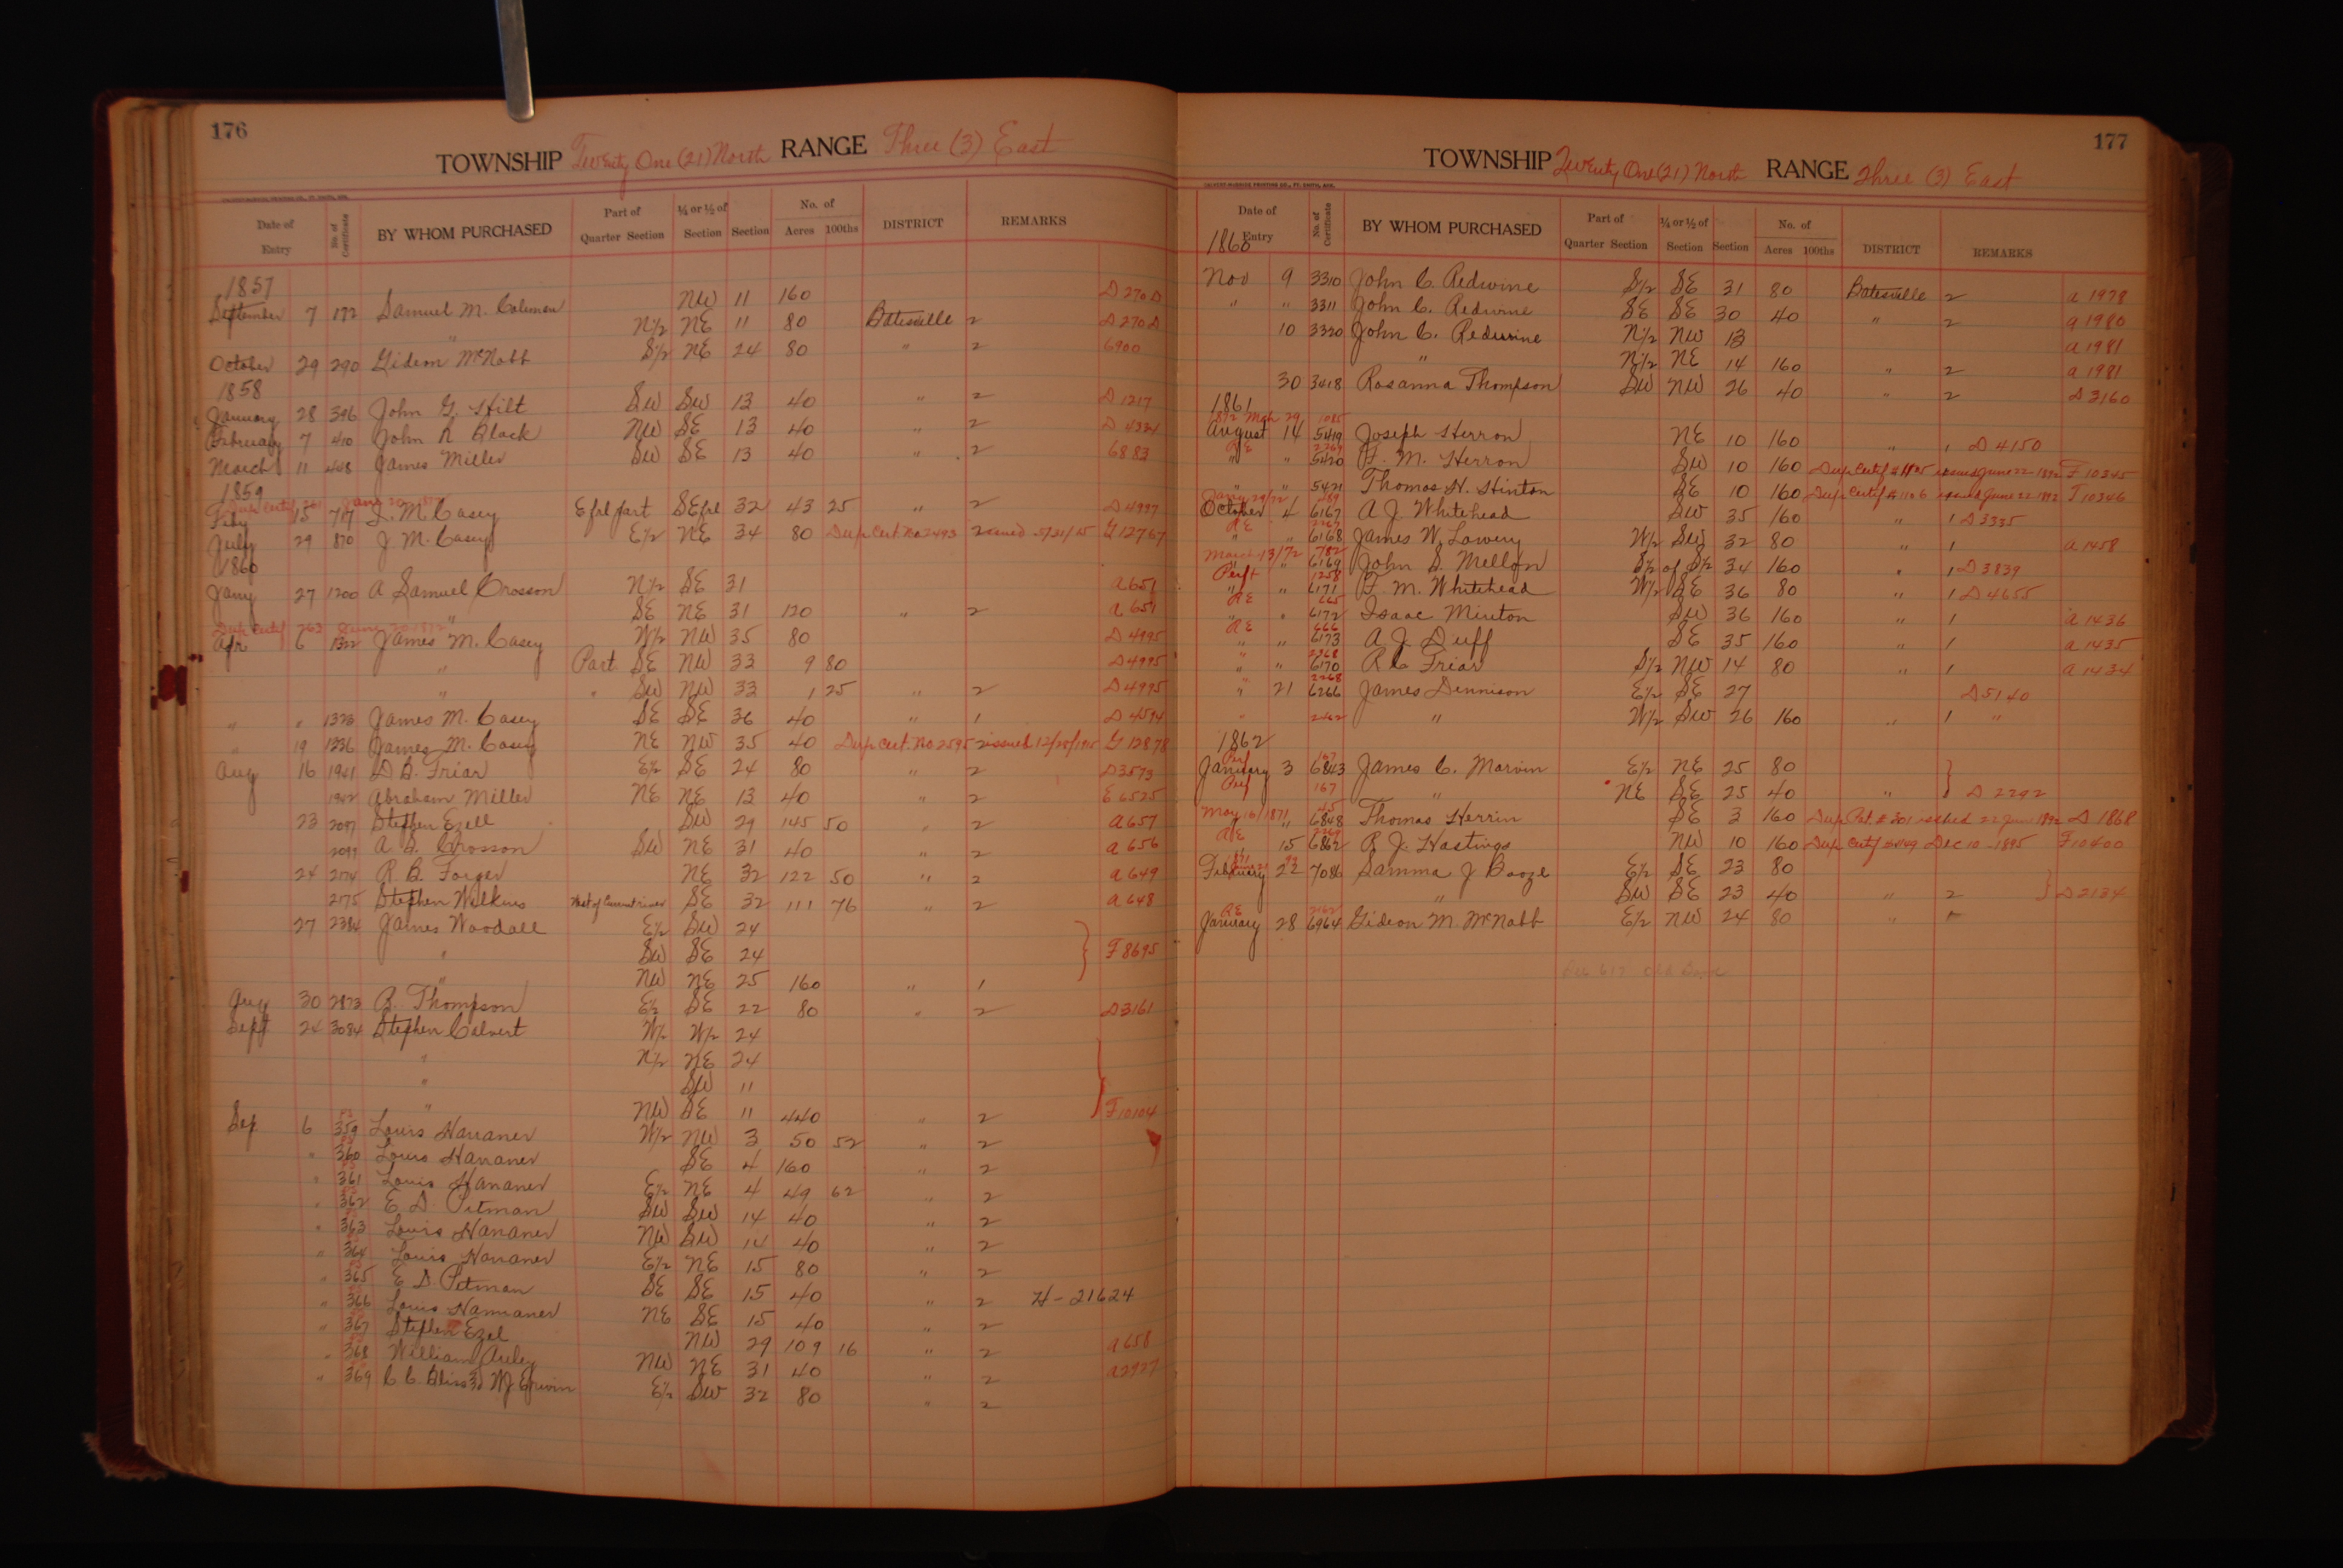 176
TOWNSHIP Twenty One (21) North RANGE Three (3) East
Date of Entry No. of Certificate BY WHOM PURCHASED Part of Quarter Section ¼ or ½ of Section Section No. of Acres 100ths DISTRICT REMARKS
1857
September 7 172 Samuel M. Coleman NW 11 160 D 270
" N½ NE 11 80 Batesville 2 D 270
October 29 290 Gideon McNabb S½ NE 24 80 " 2 6900
1858
January 28 396 John G. Hilt SW SW 13 40 " 2 D 1217
February 7 410 John R Black NW SE 13 40 " 2 D 4334
March 11 448 James Miller SW SE 13 40 " 2 6883
1859
Dup Certif
Feby 15 J. M. Casey E frl part SE frl 32 43 25 " 2 D 4997
July 29 870 J M. Casey E½ NE 34 80 Dup Cert No 2493 issued 5/21/15 G 12767
1860
Jany 27 1200 A Samuel Crosson N½ SE 31 A 651
" SE NE 31 120 " 2 A 651
Dup Certif 763
Apr 6 1322 James M. Casey W½ NW 35 80 D 4995
" Part SE NW 33 9 80 D 4995
" " SW NW 33 1 25 " 2 D 4995
" " 1323 James M. Casey SE SE 36 40 " 1 D 4594
" 19 1336 James M. Casey NE NW 35 40 Dup Cert. No 2595 issued 12/28/1915 G 12878
Aug 16 1941 D B. Friar E½ SE 24 80 " 2 D 3573
1942 Abraham Miller NE NE 13 40 " 2 E 6525
23 2097 Stephen Ezell SW 29 145 50 " 2 A 657
2099 A. B. Crosson SW NE 31 40 " 2 A 656
24 2174 R. B. Forger NE 32 122 50 " 2 A 649
2175 Stephen Wilkins West of Current river SE 32 111 76 " 2 A 648
27 2384 James Woodall E½ SW 24
" SW SE 24 F 8695
" NW NE 25 160 " 1
Aug 30 2873 B. Thompson E½ SE 22 80 " 2 D 3161
Sept 24 3084 Stephen Calvert W½ W½ 24
" N½ NE 24
" SW 11
" NW SE 11 440 " 2 F 10104
Sep 6 359 Louis Hananer W½ NW 3 50 52 " 2
" 360 Louis Hananer SE 4 160 " 2
" 361 Louis Hananer E½ NE 4 49 62 " 2
" 362 E D. Pitman SW SW 14 40 " 2
" 363 Louis Hananer NW SW 14 40 " 2
" 364 Louis Hananer E½ NE 15 80 " 2
" 365 E D. Pitman SE SE 15 40 " 2 H-21624
" 366 Louis Hananer NE SE 15 40 " 2
" 367 Stephen Ezel NW 29 109 16 " 2 A 658
" 368 William NW NE 31 40 " 2 A 2927
" 369 C C. Bliss & W J Erwin E½ SW 32 80 " 2
177
TOWNSHIP Twenty One (21) North RANGE Three (3) East
Date of Entry No. of Certificate BY WHOM PURCHASED Part of Quarter Section ¼ or ½ of Section Section No. of Acres 100ths DISTRICT REMARKS
1860
Nov 9 3310 John C. Redwine S½ SE 31 80 Batesville 2 A 1978
" " 3311 John C. Redwine SE SE 30 40 " 2 A 1980
10 3320 John C. Redwine N½ NW 13 A 1981
" N½ NE 14 160 " 2 A 1981
30 3418 Rosanna Thompson SW NW 26 40 " 2 D 3160
1861
1872 Mch 29 1085
August 14 5419 Joseph Herron NE 10 160 " 1 D 4150
RE
" " 5420 F. M. Herron SW 10 160 Dup Certif # 1105 issued June 22 1892 F 10345
" " 5421 Thomas H. Hinton SE 10 160 Dup Certif # 1106 issued June 22 1892 F 10346
Jany 29/72
October 4 6167 A J. Whitehead SW 35 160 " 1 D 3335
RE
" " 6168 James W. Lowery W½ SW 32 80 " 1 A 1458
March 13/72 782
" " 6169 John S. Mellon S½ of S½ 34 160 " 1 D 3839
Perft 1258
" " 6171 F. M. Whitehead W½ SE 36 80 " 1 D 4655
RE 665
" " 6172 Isaac Minton SW 36 160 " 1 A 1436
RE 666
" " 6173 A J. Duff SE 35 160 " 1 A 1435
" 2268
" " 6170 R C Friar S½ NW 14 80 " 1 A 1434
" 2268
" 21 6266 James Dennison E½ SE 27 D 5140
" " W½ SW 26 160 " 1 "
1862
Perf 167
January 3 6843 James C. Marvin E½ NE 25 80
Perf 167 " NE SE 25 40 " D 2292
May 16/1871 45
" 6848 Thomas Herrin SE 3 160 22 June 1892 D 1868
RE
15 6862 R J. Hastings NW 10 160 Dup Certif # 1149 Dec 10 - 1895 F 10400
February 22 7086 Samma J Booze E½ SE 23 80
" SW SE 23 40 " 2 D 2134
RE
January 28 6964 Gideon M. McNabb E½ NW 24 80 " "